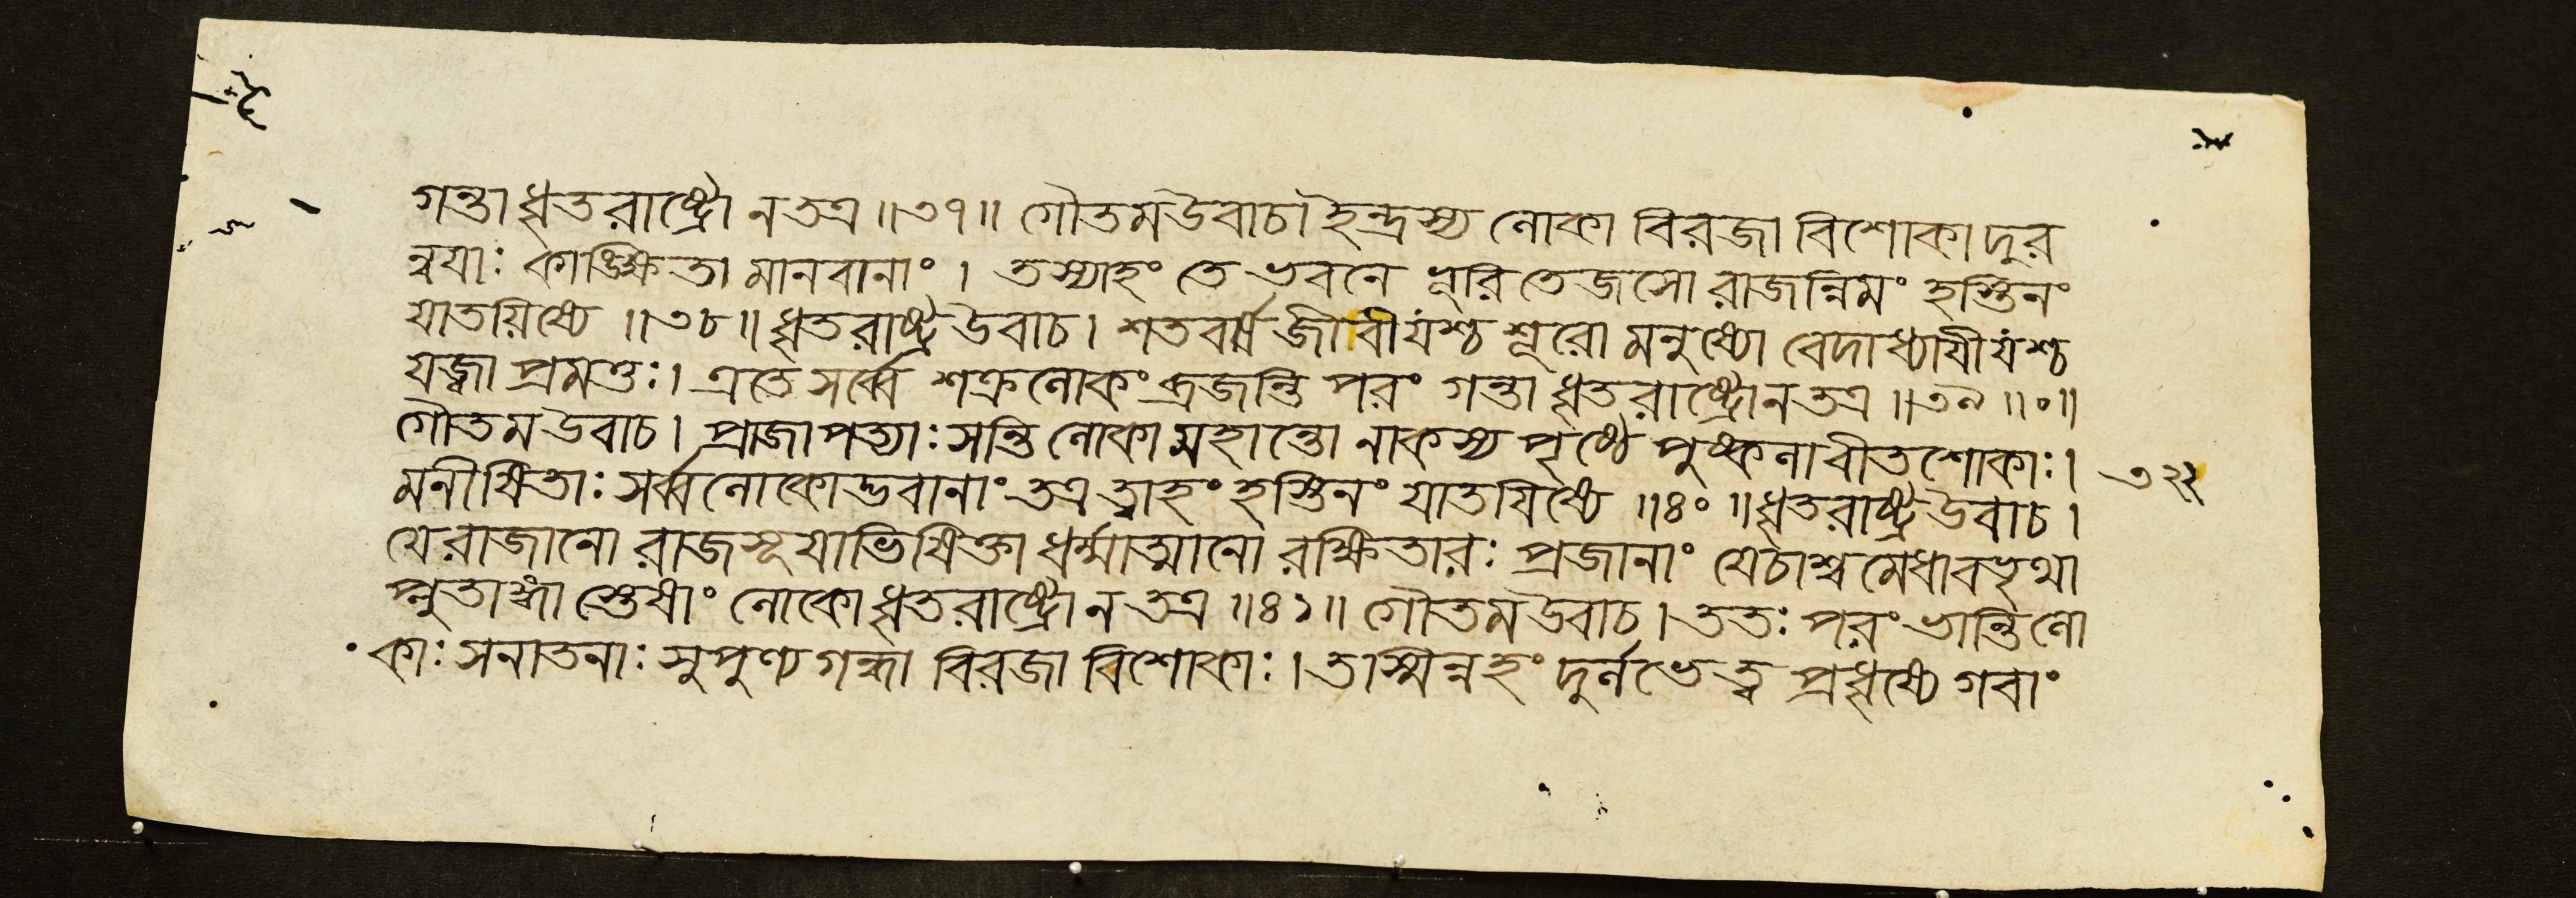 গন্তা ধৃতরাষ্ট্রো ন তত্র ॥৩৭॥ গৌতম উবাচ। ইন্দ্রস্য লোকা বিরজা বিশোকা দুর
ন্বয়াঃ কাঙ্ক্ষিতা মানবানাং । তস্যাহং তে ভবনে ভূরিতেজসো রাজন্নিমং হস্তিনং
যাতয়িষ্যে ॥৩৮॥ ধৃতরাষ্ট্র উবাচ। শতবর্ষজীবী যশ্চ শূরো মনুষ্যো বেদাধ্যায়ী যশ্চ
যজ্বা প্রমত্তঃ। এতে সর্ব্বে শক্রলোকং ব্রজন্তি পরং গন্তা ধৃতরাষ্ট্রো ন তত্র ॥৩৯॥০॥
গৌতম উবাচ। প্রাজাপত্যাঃ সন্তি লোকা মহান্তো নাকস্য পৃষ্ঠে পুষ্কলা বীতশোকাঃ।
মনীষিতাঃ সর্ব্বলোকোদ্ভবানাং তত্র ত্বাহং হস্তিনং যাতয়িষ্যে ॥৪০॥ ধৃতরাষ্ট্র উবাচ।
৩২২
যে রাজানো রাজসূয়াভিষিক্তা ধর্ম্মাত্মানো রক্ষিতারঃ প্রজানাং যে চাশ্বমেধাবভৃথা
প্লুতাঙ্গাস্তেষাং লোকো ধৃতরাষ্ট্রো ন তত্র ॥৪১॥ গৌতম উবাচ। ততঃ পরং ভান্তি লো
কাঃ সনাতনাঃ সুপুণ্যগন্ধা বিরজা বিশোকাঃ। তস্মিন্নহং দুর্লভে ত্ব প্রধৃষ্যে গবাং